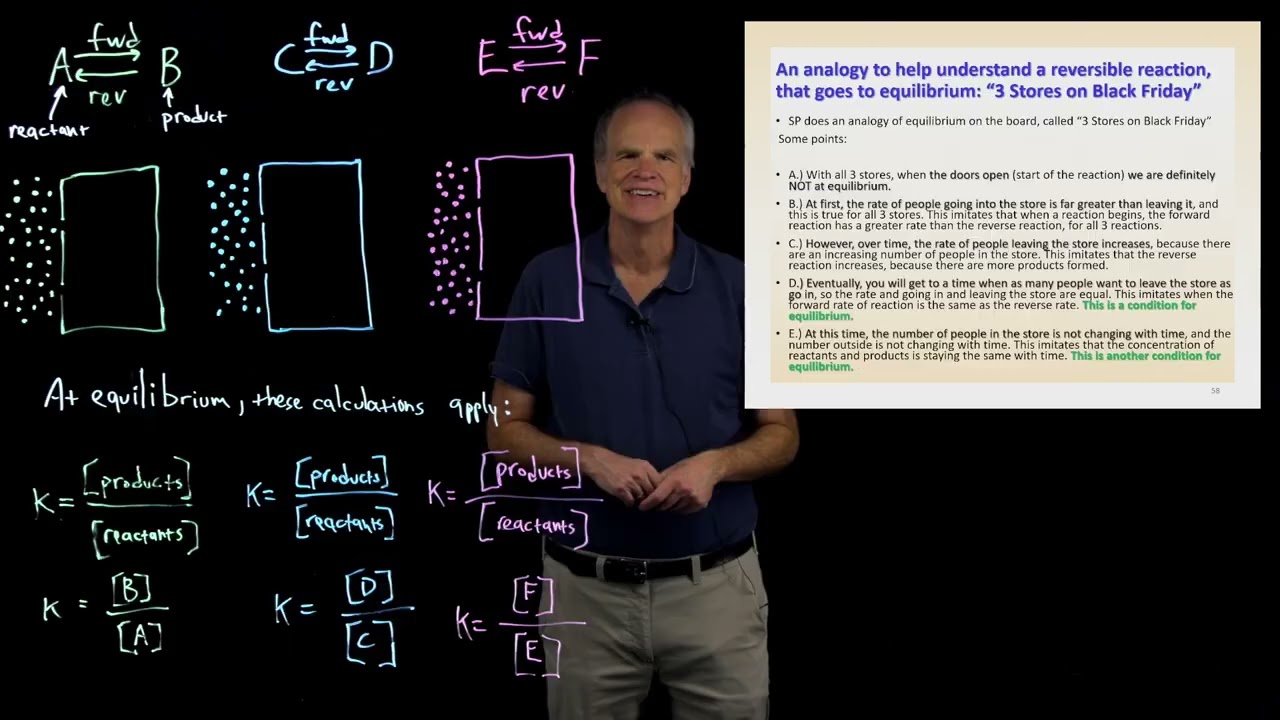 fwd
A ⇌ B
rev
reactant
product
fwd
C ⇌ D
rev
fwd
E ⇌ F
rev
At equilibrium, these calculations apply:
K = [products]
[reactants]
K = [B]
[A]
K = [products]
[reactants]
K = [D]
[C]
K = [products]
[reactants]
K = [F]
[E]
An analogy to help understand a reversible reaction,
that goes to equilibrium: “3 Stores on Black Friday”
• SP does an analogy of equilibrium on the board, called “3 Stores on Black Friday”
Some points:
• A.) With all 3 stores, when the doors open (start of the reaction) we are definitely
NOT at equilibrium.
• B.) At first, the rate of people going into the store is far greater than leaving it, and
this is true for all 3 stores. This imitates that when a reaction begins, the forward
reaction has a greater rate than the reverse reaction, for all 3 reactions.
• C.) However, over time, the rate of people leaving the store increases, because there
are an increasing number of people in the store. This imitates that the reverse
reaction increases, because there are more products formed.
• D.) Eventually, you will get to a time when as many people want to leave the store as
go in, so the rate and going in and leaving the store are equal. This imitates when the
forward rate of reaction is the same as the reverse rate. This is a condition for
equilibrium.
• E.) At this time, the number of people in the store is not changing with time, and the
number outside is not changing with time. This imitates that the concentration of
reactants and products is staying the same with time. This is another condition for
equilibrium.
58